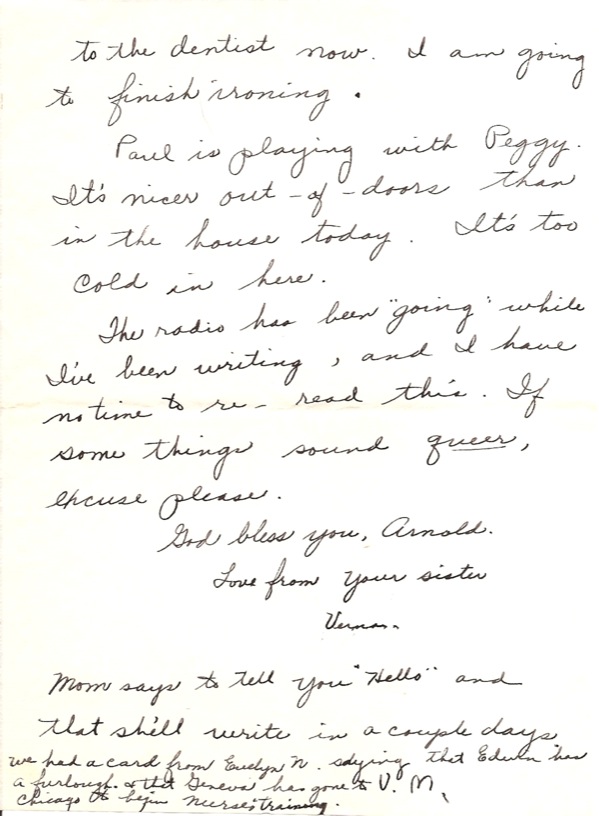 to the dentist now. I am going
to finish ironing.
Paul is playing with Peggy.
It's nicer out-of-doors than
in the house today. It's too
cold in here.
The radio has been "going" while
I've been writing, and I have
no time to re-read this. If
some things sound queer,
excuse please.
God bless you, Arnold.
Love from your sister
Verna.
Mom says to tell you "Hello" and
that she'll write in a couple days
we had a card from Evelyn N. saying that Edwin has
a furlough & that Geneva has gone to V. M,
Chicago to begin nurse's training.